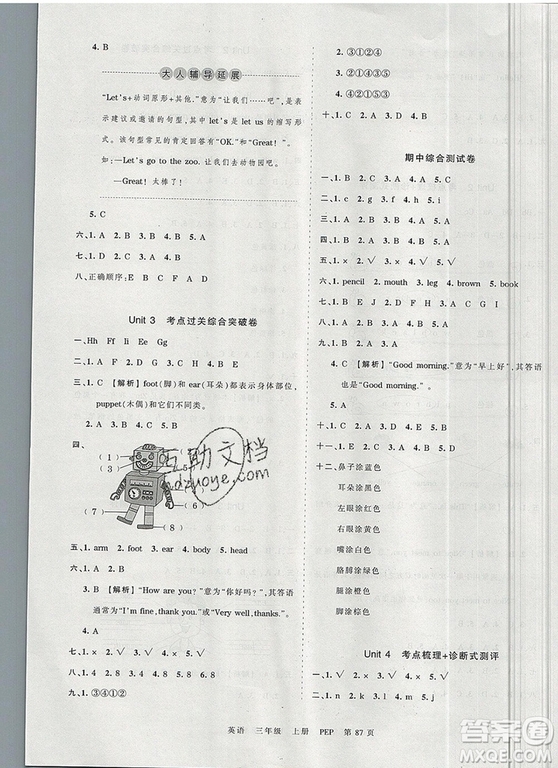 4. B
大人辅导延展
“Let's+动词原形+其他.”意为“让我们……吧”,是表
示建议或邀请的句型,其中 let's 是 let us 的缩写形
式。该句型常见的肯定回答有“OK.”和“Great!”。
如:—Let's go to the zoo. 让我们去动物园吧。
—Great! 太棒了!
5. C
六、1. A 2. A 3. B 4. B 5. A
七、1. D 2. C 3. A 4. B
八、正确顺序:E B C F A D
Unit 3 考点过关综合突破卷
一、Hh Ff Ii Ee Gg
三、1. C 【解析】foot(脚)和 ear(耳朵)都表示身体部位,
puppet(木偶)和它们不同类。
2. A 3. B 4. A 5. C
四、
(1)
(6)
(7)
(8)
五、1. arm 2. foot 3. body 4. hand 5. head
六、1. C 2. A
3. B 【解析】“How are you?”意为“你好吗?”,其答语
通常为“I'm fine,thank you.”或“Very well,thanks.”。
4. A
七、1. × 2. √ 3. √ 4. × 5. √
八、1. 4 2. 8 3. 4 4. 4 5. 8 6. 8
九、1. ③④①②
2. ③①②④
3. ①④②③⑤
4. ②④①⑤③
十、1. C 2. A 3. D 4. B
期中综合测试卷
一、1. B 2. A 3. B 4. B 5. A
二、1. c 2. d 3. g 4. f 5. h 6. i
三、1. A 2. B 3. A 4. A 5. B
四、1. × 2. √ 3. × 4. √ 5. √
六、1. pencil 2. mouth 3. leg 4. brown 5. bag
八、1. B 2. D 3. A 4. E 5. C F H J G I
九、1. A 2. B 3. A
4. B 【解析】“Good morning.”意为“早上好!”,其答语
也是“Good morning.”。
5. A
十、1. × 2. √ 3. × 4. √ 5. ×
十一、1. D 2. C 3. A 4. B 5. E
十二、鼻子涂蓝色
耳朵涂黑色
左眼涂绿色
右眼涂黄色
嘴涂白色
胳膊涂红色
腿涂橙色
脚涂棕色
Unit 4 考点梳理+诊断式测评
一、1. √ 2. √ 3. × 4. × 5. √
英语 三年级 上册 PEP 第 87 页
互助文档
hdzuoye.com
答案圈
MXQE.COM